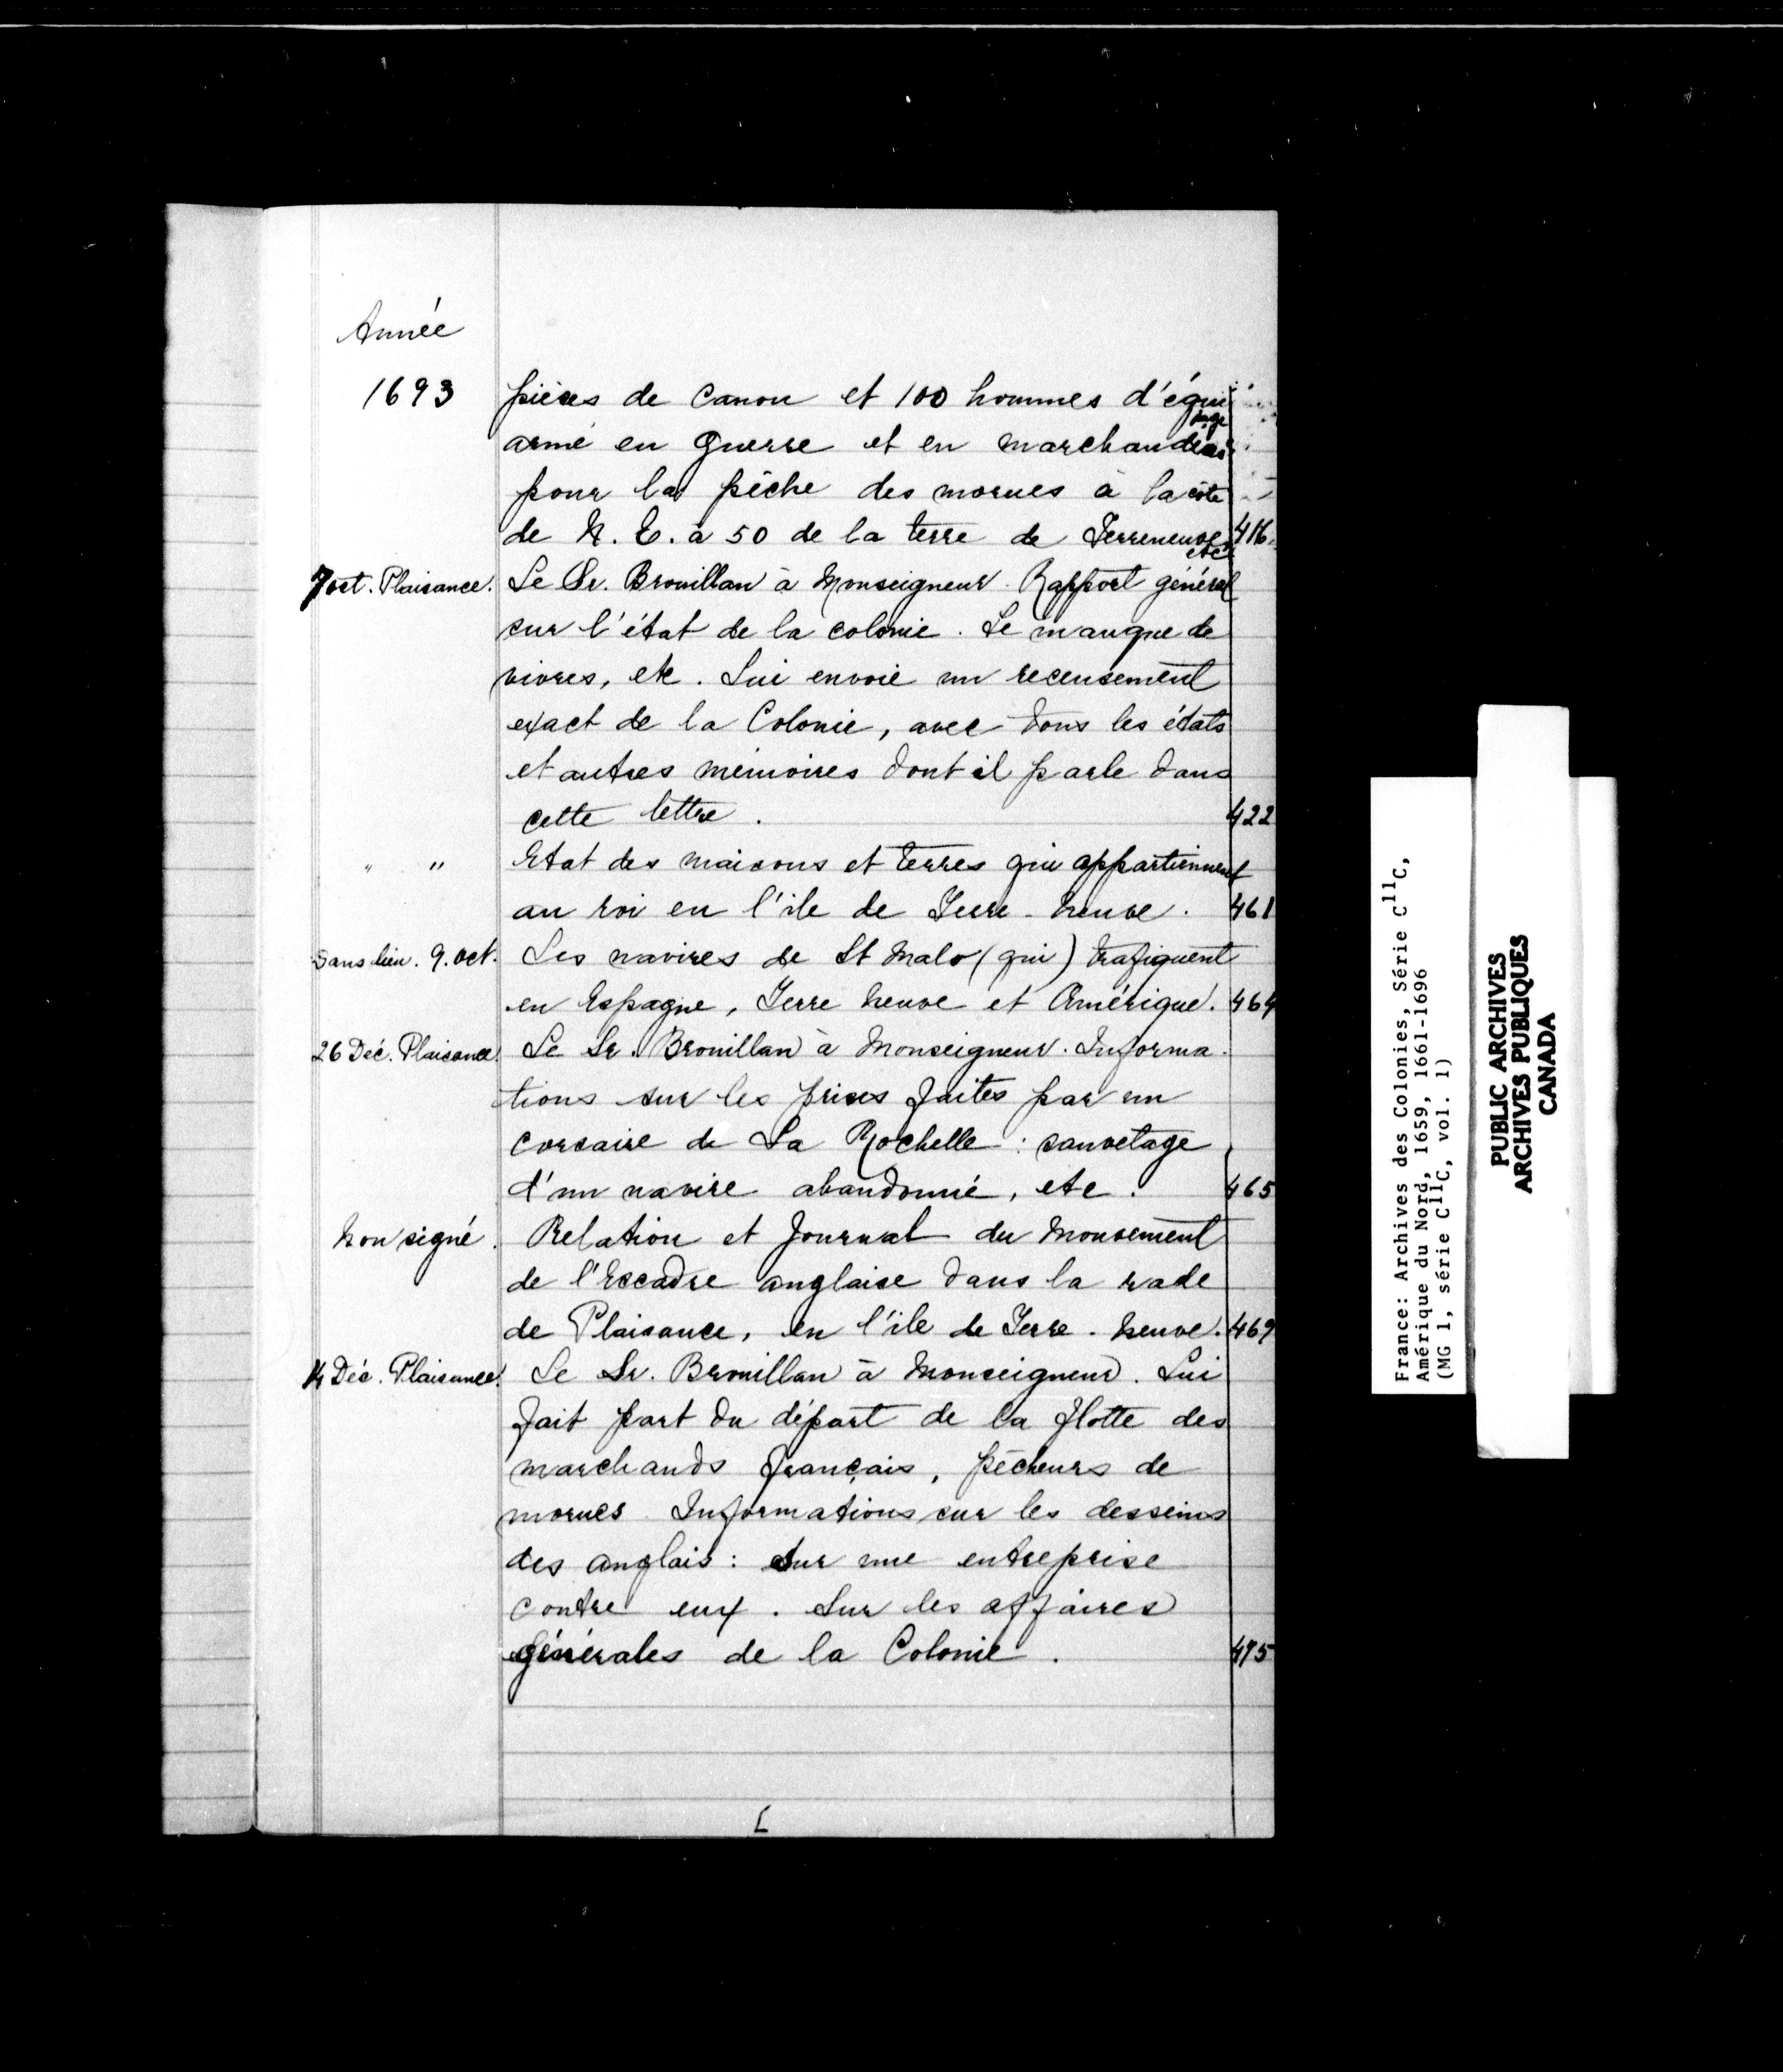 Année
1693 pièces de canon et 100 hommes d'équi
page
armé en guerre et en marchandises
pour la pêche des morues à la côte
de N. E. à 50 de la terre de Terreneuve 416
etc
7 oct. Plaisance. Le Sr. Brouillan à Monseigneur. Rapport général
sur l'état de la colonie. Le manque de
vivres, etc. Lui envoie un recensement
exact de la Colonie, avec tous les états
et autres mémoires dont il parle dans
cette lettre. 422
" " Etat des maisons et terres qui appartiennent
au roi en l'ile de Terre-neuve. 461
Sans lieu. 9. oct. Les navires de St Malo (qui) trafiquent
en Espagne, Terre neuve et Amérique. 464
26 Déc. Plaisance. Le Sr. Brouillan à Monseigneur. Informa-
tions sur les prises faites par un
corsaire de La Rochelle : sauvetage
d'un navire abandonné, etc. 465
Non signé. Relation et Journal du Mouvement
de l'Escadre anglaise dans la rade
de Plaisance, en l'ile de Terre-neuve. 469
14 Déc. Plaisance. Le Sr. Brouillan à Monseigneur. Lui
fait part du départ de la flotte des
marchands français, pêcheurs de
morues. Informations sur les desseins
des anglais : Sur une entreprise
contre eux. Sur les affaires
générales de la Colonie. 475
France: Archives des Colonies, Série C11C,
Amérique du Nord, 1659, 1661-1696
(MG 1, série C11C, vol. 1)
PUBLIC ARCHIVES
ARCHIVES PUBLIQUES
CANADA